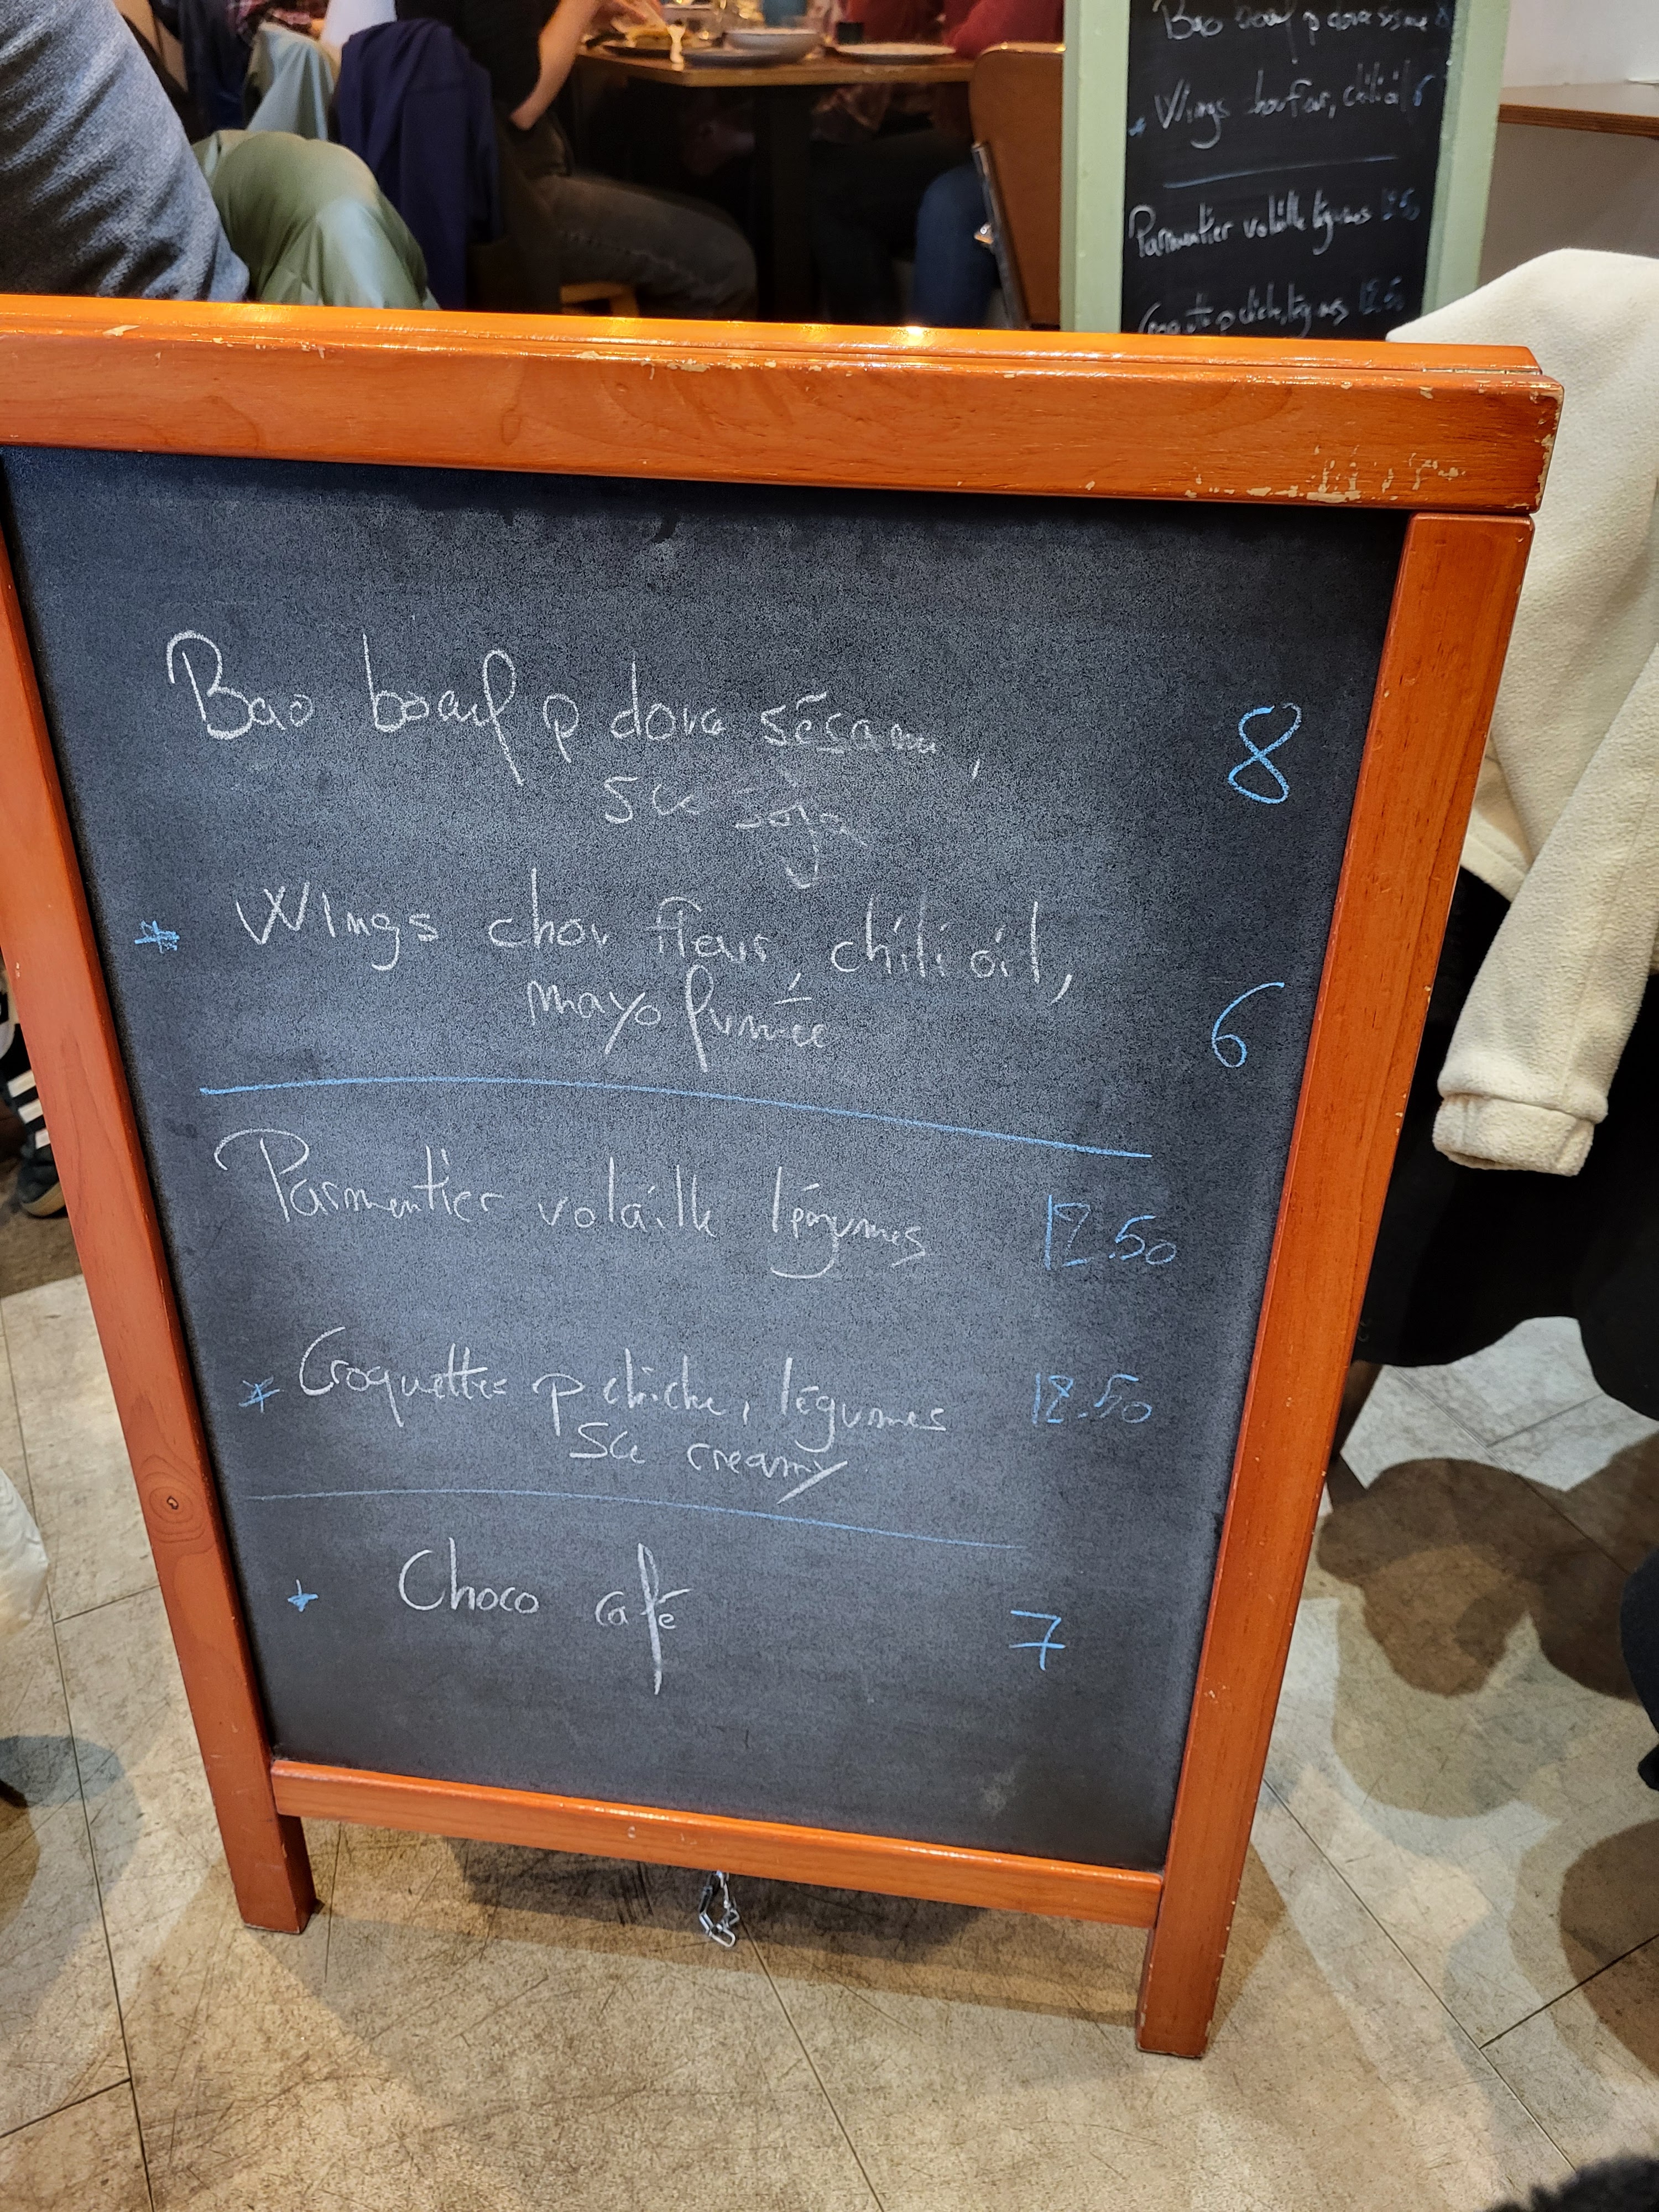 Bao boeuf p dora sésame
Wings chou fleur, chili oil 6
Parmentier volaille légumes 12.50
Croquettes p chiche, légumes 12.50
Bao boeuf p dora sésame, 8
sce soja
* Wings chou fleur, chili oil,
mayo fumée 6
Parmentier volaille légumes 12.50
* Croquettes p chiche, légumes 12.50
sce creamy
* Choco café 7